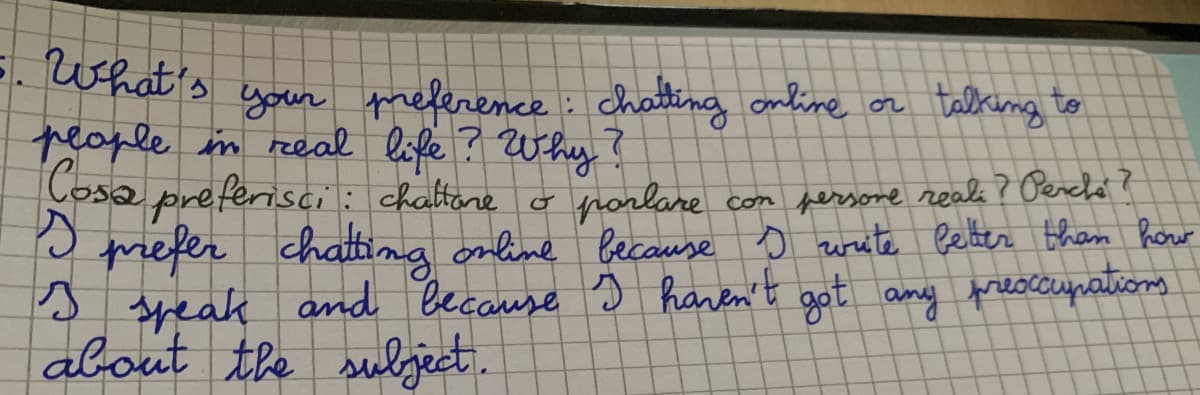 5. What's your preference: chatting online or talking to
people in real life? Why?
Cosa preferisci: chattare o parlare con persone reali? Perché?
I prefer chatting online because I write better than how
I speak and because I haven't got any preoccupations
about the subject.